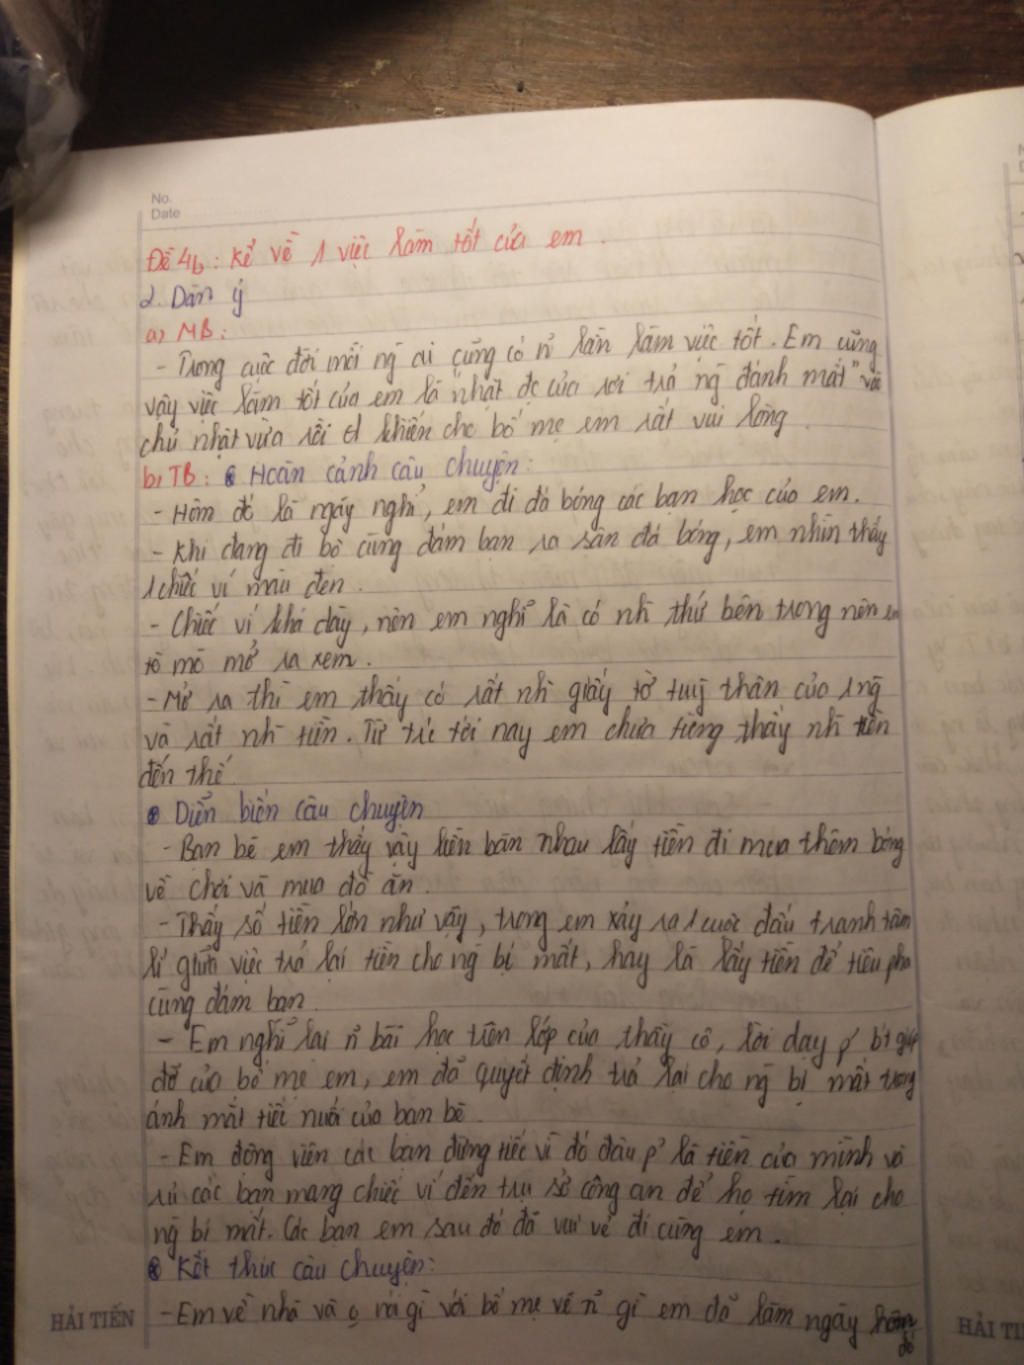 No.
Date
Đề 4b: Kể về 1 việc làm tốt của em.
2. Dàn ý
a, MB:
- Trong cuộc đời mỗi ng ai cũng có n~ lần làm việc tốt. Em cũng
vậy việc làm tốt của em là "nhặt đc của rơi trả ng đánh mất" vào
chủ nhật vừa rồi đã khiến cho bố mẹ em rất vui lòng.
b, TB: Hoàn cảnh câu chuyện:
- Hôm đó là ngày nghỉ, em đi đá bóng các bạn học của em.
- Khi đang đi bộ cùng đám bạn ra sân đá bóng, em nhìn thấy
1 chiếc ví màu đen.
- Chiếc ví khá dày, nên em nghĩ là có nh` thứ bên trong nên em
tò mò mở ra xem.
- Mở ra thì em thấy có rất nh` giấy tờ tuỳ thân của 1 ng
và rất nh` tiền. Từ trc tới nay em chưa từng thấy nh` tiền
đến thế
Diễn biến câu chuyện
- Bạn bè em thấy vậy liền bàn nhau lấy tiền đi mua thêm bóng
về chơi và mua đồ ăn.
- Thấy số tiền lớn như vậy, trong em xảy ra 1 cuộc đấu tranh tâm
lí giữa việc trả lại tiền cho ng bị mất, hay là lấy tiền để tiêu pha
cùng đám bạn.
- Em nghĩ lại n~ bài học trên lớp của thầy cô, lời dạy p' b't giúp
đỡ của bố mẹ em, em đã quyết định trả lại cho ng bị mất trong
ánh mắt tiếc nuối của bạn bè.
- Em động viên các bạn đừng tiếc vì đó đâu p' là tiền của mình và
rủ các bạn mang chiếc ví đến trụ sở công an để họ tìm lại cho
ng bị mất. Các bạn em sau đó đã vui vẻ đi cùng em.
Kết thúc câu chuyện:
- Em về nhà và nói gì với bố mẹ về n~ gì em đã làm ngày hôm
đó
HẢI TIẾN
HẢI TI